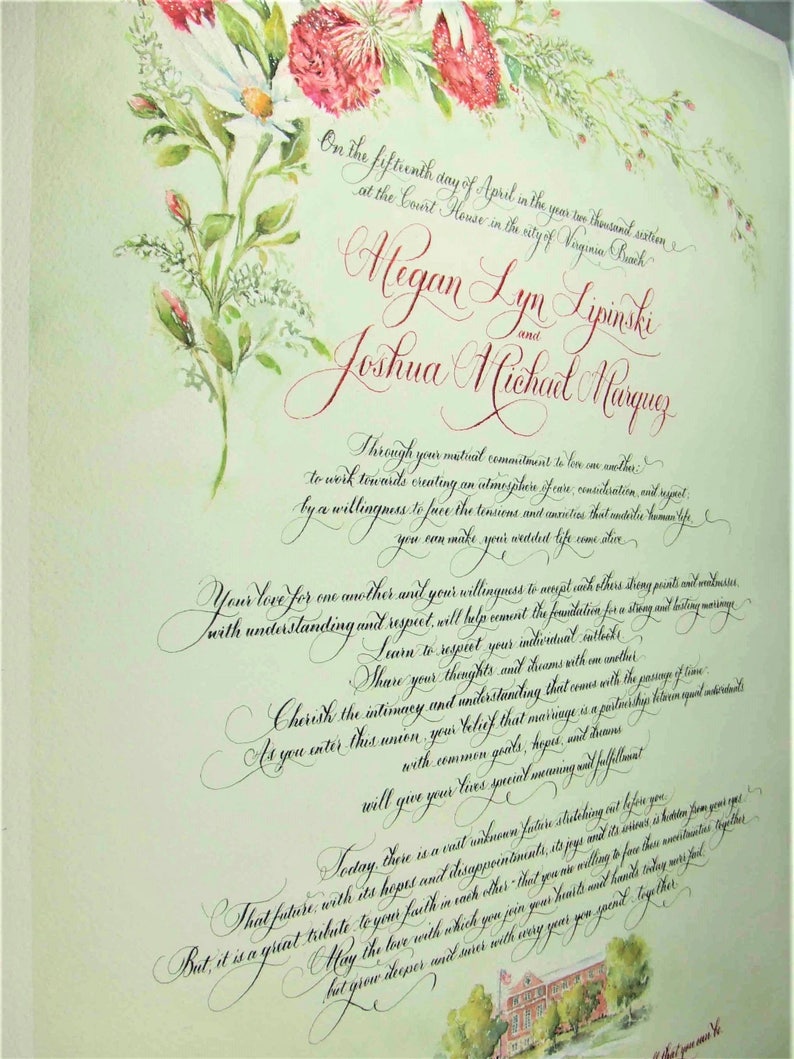 On the fifteenth day of April in the year two thousand sixteen
at the Court House in the city of Virginia Beach
Megan Lyn Lipinski
and
Joshua Michael Marquez
Through your mutual commitment to love one another;
to work towards creating an atmosphere of care, consideration, and respect;
by a willingness to face the tensions and anxieties that underlie human life,
you can make your wedded life come alive
Your love for one another and your willingness to accept each others strong points and weaknesses,
with understanding and respect, will help cement the foundation for a strong and lasting marriage
Learn to respect your individual outlooks
Share your thoughts and dreams with one another
Cherish the intimacy and understanding that comes with the passage of time.
As you enter this union, your belief that marriage is a partnership between equal individuals
with common goals, hopes, and dreams
will give your lives special meaning and fulfillment
Today, there is a vast unknown future stretching out before you.
That future, with its hopes and disappointments, its joys and its sorrows, is hidden from your eyes
But, it is a great tribute to your faith in each other - that you are willing to face those uncertainties together
May the love with which you join your hearts and hands today never fail,
but grow deeper and surer with every year you spend together
that you can be.